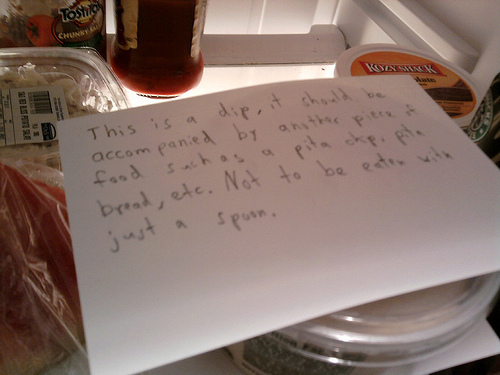 Tostitos
CHUNKY
KOZY SHACK
This is a dip, it should be
accompanied by another piece of
food such as a pita chip, pita
bread, etc. Not to be eaten with
just a spoon.